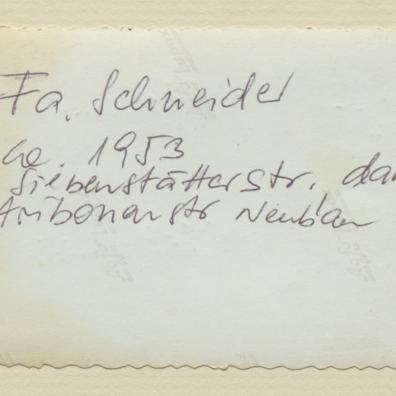 Fa. Schneider
ca. 1953
Siebenstätterstr. dan
Aribonenstr Neubau